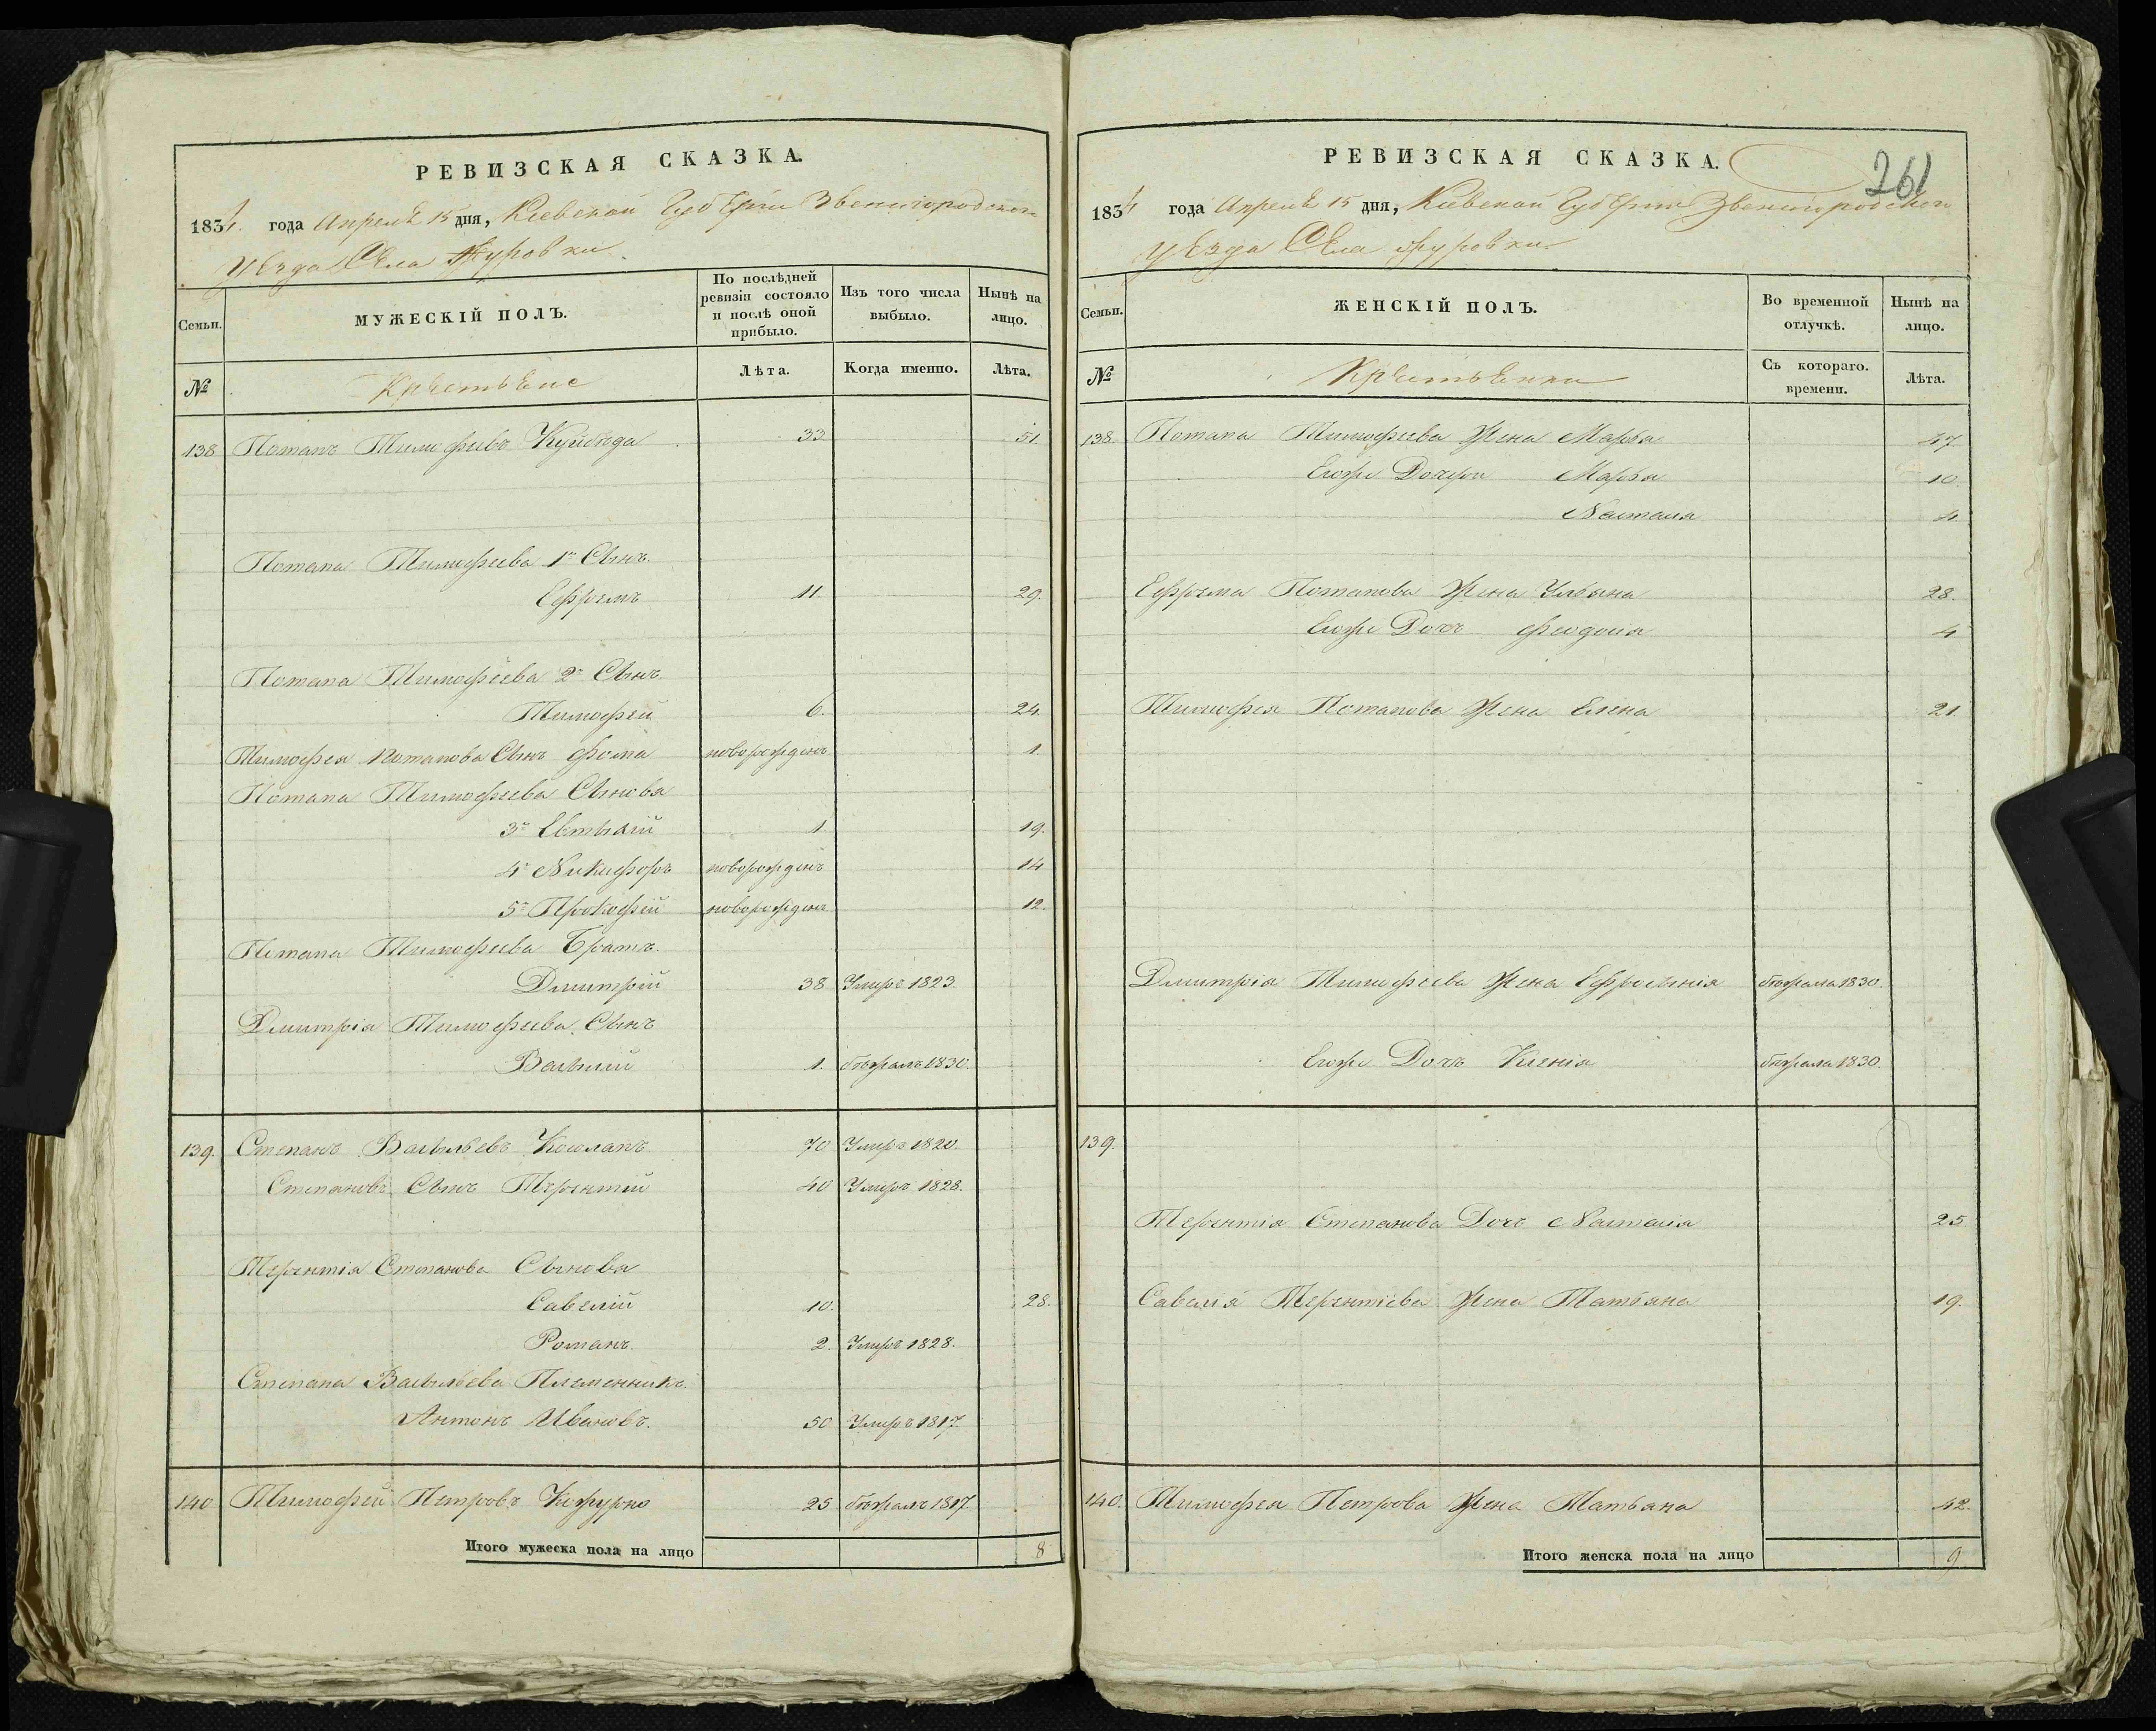 РЕВИЗСКАЯ СКАЗКА.
1834. года Апреля 15 дня, Кіевской Губерніи Звенигородскаго
уѣзда Села Журовки
Семьи.
МУЖЕСКІЙ ПОЛЪ.
По послѣдней ревизіи состояло и послѣ оной прибыло.
Изъ того числа выбыло.
Нынѣ на лицо.
№
Крестьяне
Лѣта.
Когда именно.
Лѣта.
138 Потапъ Тимофеевъ 33 51
Потапа Тимофеева 1й Сынъ
Ефремъ 11. 29.
Потапа Тимофеева 2й Сынъ
Тимофей 6. 24.
Тимофея Потапова Сынъ Фома новорожденъ 1.
Потапа Тимофеева Сыновья
3й Евтихій 1. 19.
4й Никифоръ новорожденъ 14
5й Прокофій новорожденъ 12.
Потапа Тимофеева Братъ
Дмитрій 38 Умре 1823.
Дмитрія Тимофеева Сынъ
Василій 1. бѣжалъ 1830.
139. Степанъ Васильевъ 70 Умръ 1820.
Степановъ Сынъ Терентій 40 Умръ 1828.
Терентія Степанова Сыновья
Савелій 10. 28.
Романъ 2. Умръ 1828.
Степана Васильева Племенникъ
Антонъ Ивановъ. 50 Умръ 1817.
140 Тимофей Петровъ 25 бѣжалъ 1817.
Итого мужеска пола на лицо 8
РЕВИЗСКАЯ СКАЗКА.
261
1834 года Апреля 15 дня, Кіевской Губерніи Звенигородскаго
уѣзда Села Журовки
Семьи.
ЖЕНСКІЙ ПОЛЪ.
Во временной отлучкѣ.
Нынѣ на лицо.
№
Крестьянки
Съ котораго. времени.
Лѣта.
138. Потапа Тимофеева Жена Марфа 47.
Егоже Дочери Марфа 10.
Настасія 4.
Ефрема Потапова Жена Ульяна 28.
Егоже Дочъ Феодосія 4
Тимофея Потапова Жена Елена 21.
Дмитрія Тимофеева Жена Ефросинія бѣжала 1830.
Егоже Дочъ Ксенія бѣжала 1830.
139.
Терентія Степанова Дочъ Настасія 25
Савелія Терентіева Жена Татьяна 19.
140. Тимофея Петрова Жена Татьяна 42.
Итого женска пола на лицо 9